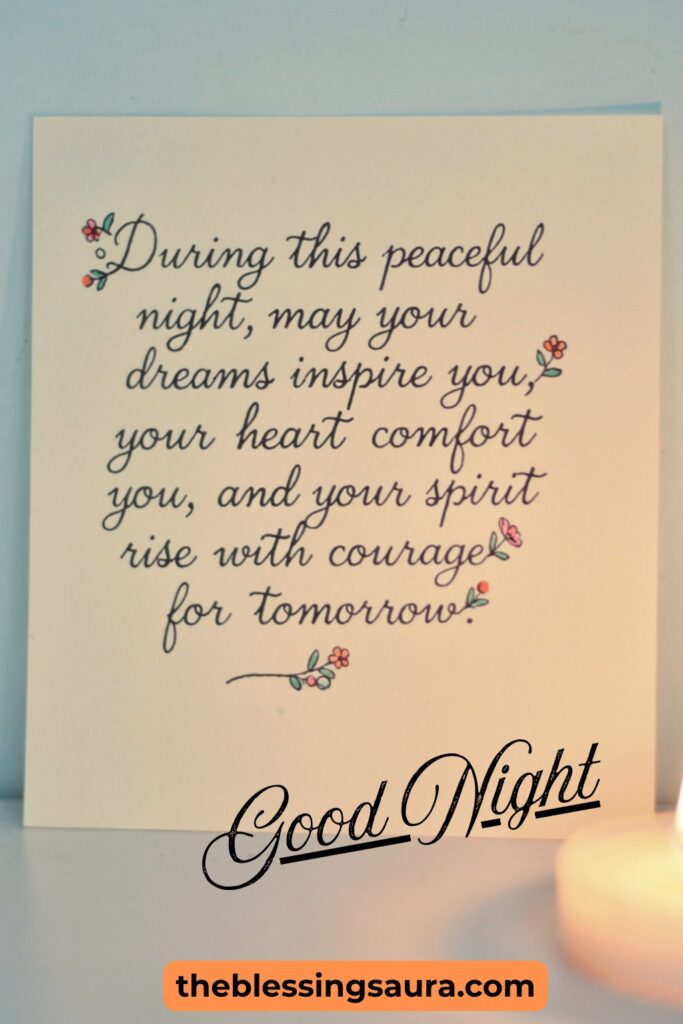 During this peaceful
night, may your
dreams inspire you,
your heart comfort
you, and your spirit
rise with courage
for tomorrow.
Good Night
theblessingsaura.com